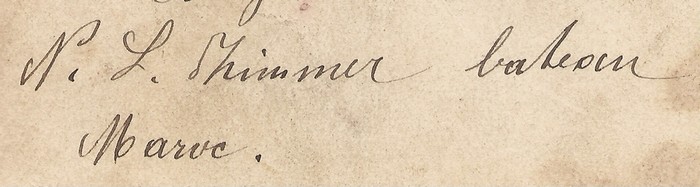 N. L. Thimmer bateau
Maroc.